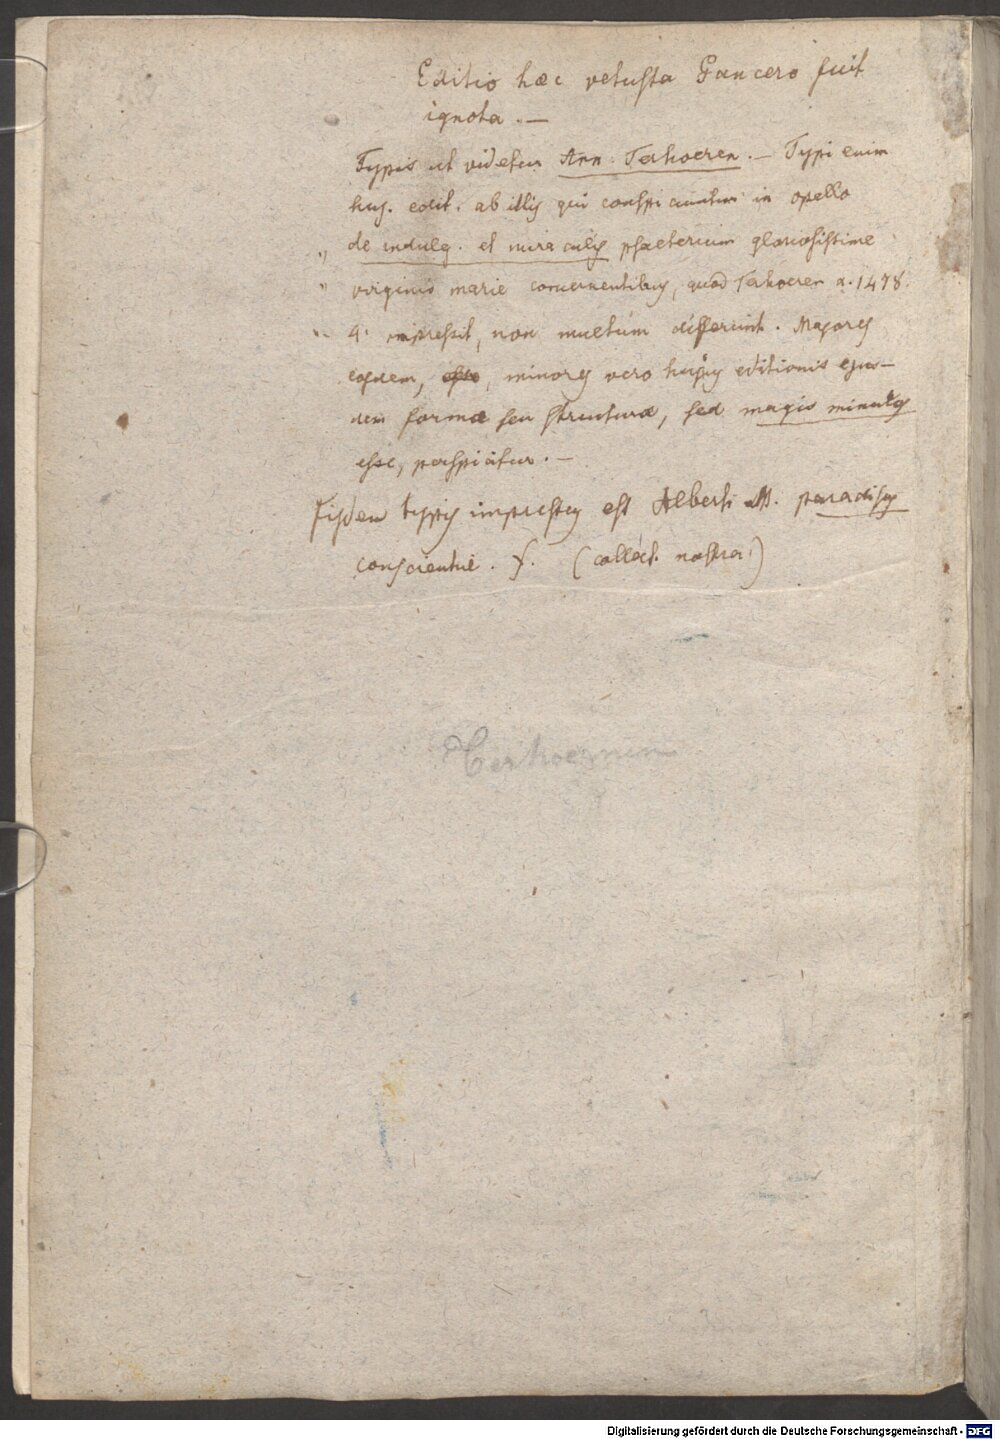 Editio hæc vetusta Panzero fuit
ignota. —
Typis ut videtur Arn. Terhoeren. — Typi enim
huj. edit. ab illis qui conspiciuntur in opello
„ de indulg. et miraculis psalterium gloriosissime
„ virginis marie concernentibus, quod Terhoeren a. 1478.
„ 4° impressit, non multum differunt. Majores
eosdem, esse, minores vero hujus editionis ejus-
dem formæ seu structuræ, sed magis minutos
esse, perspicitur. —
Iisdem typis impressus est Alberti M. paradisus
conscientie. f. (collect. nostra)
Terhoernen
Digitalisierung gefördert durch die Deutsche Forschungsgemeinschaft - DFG